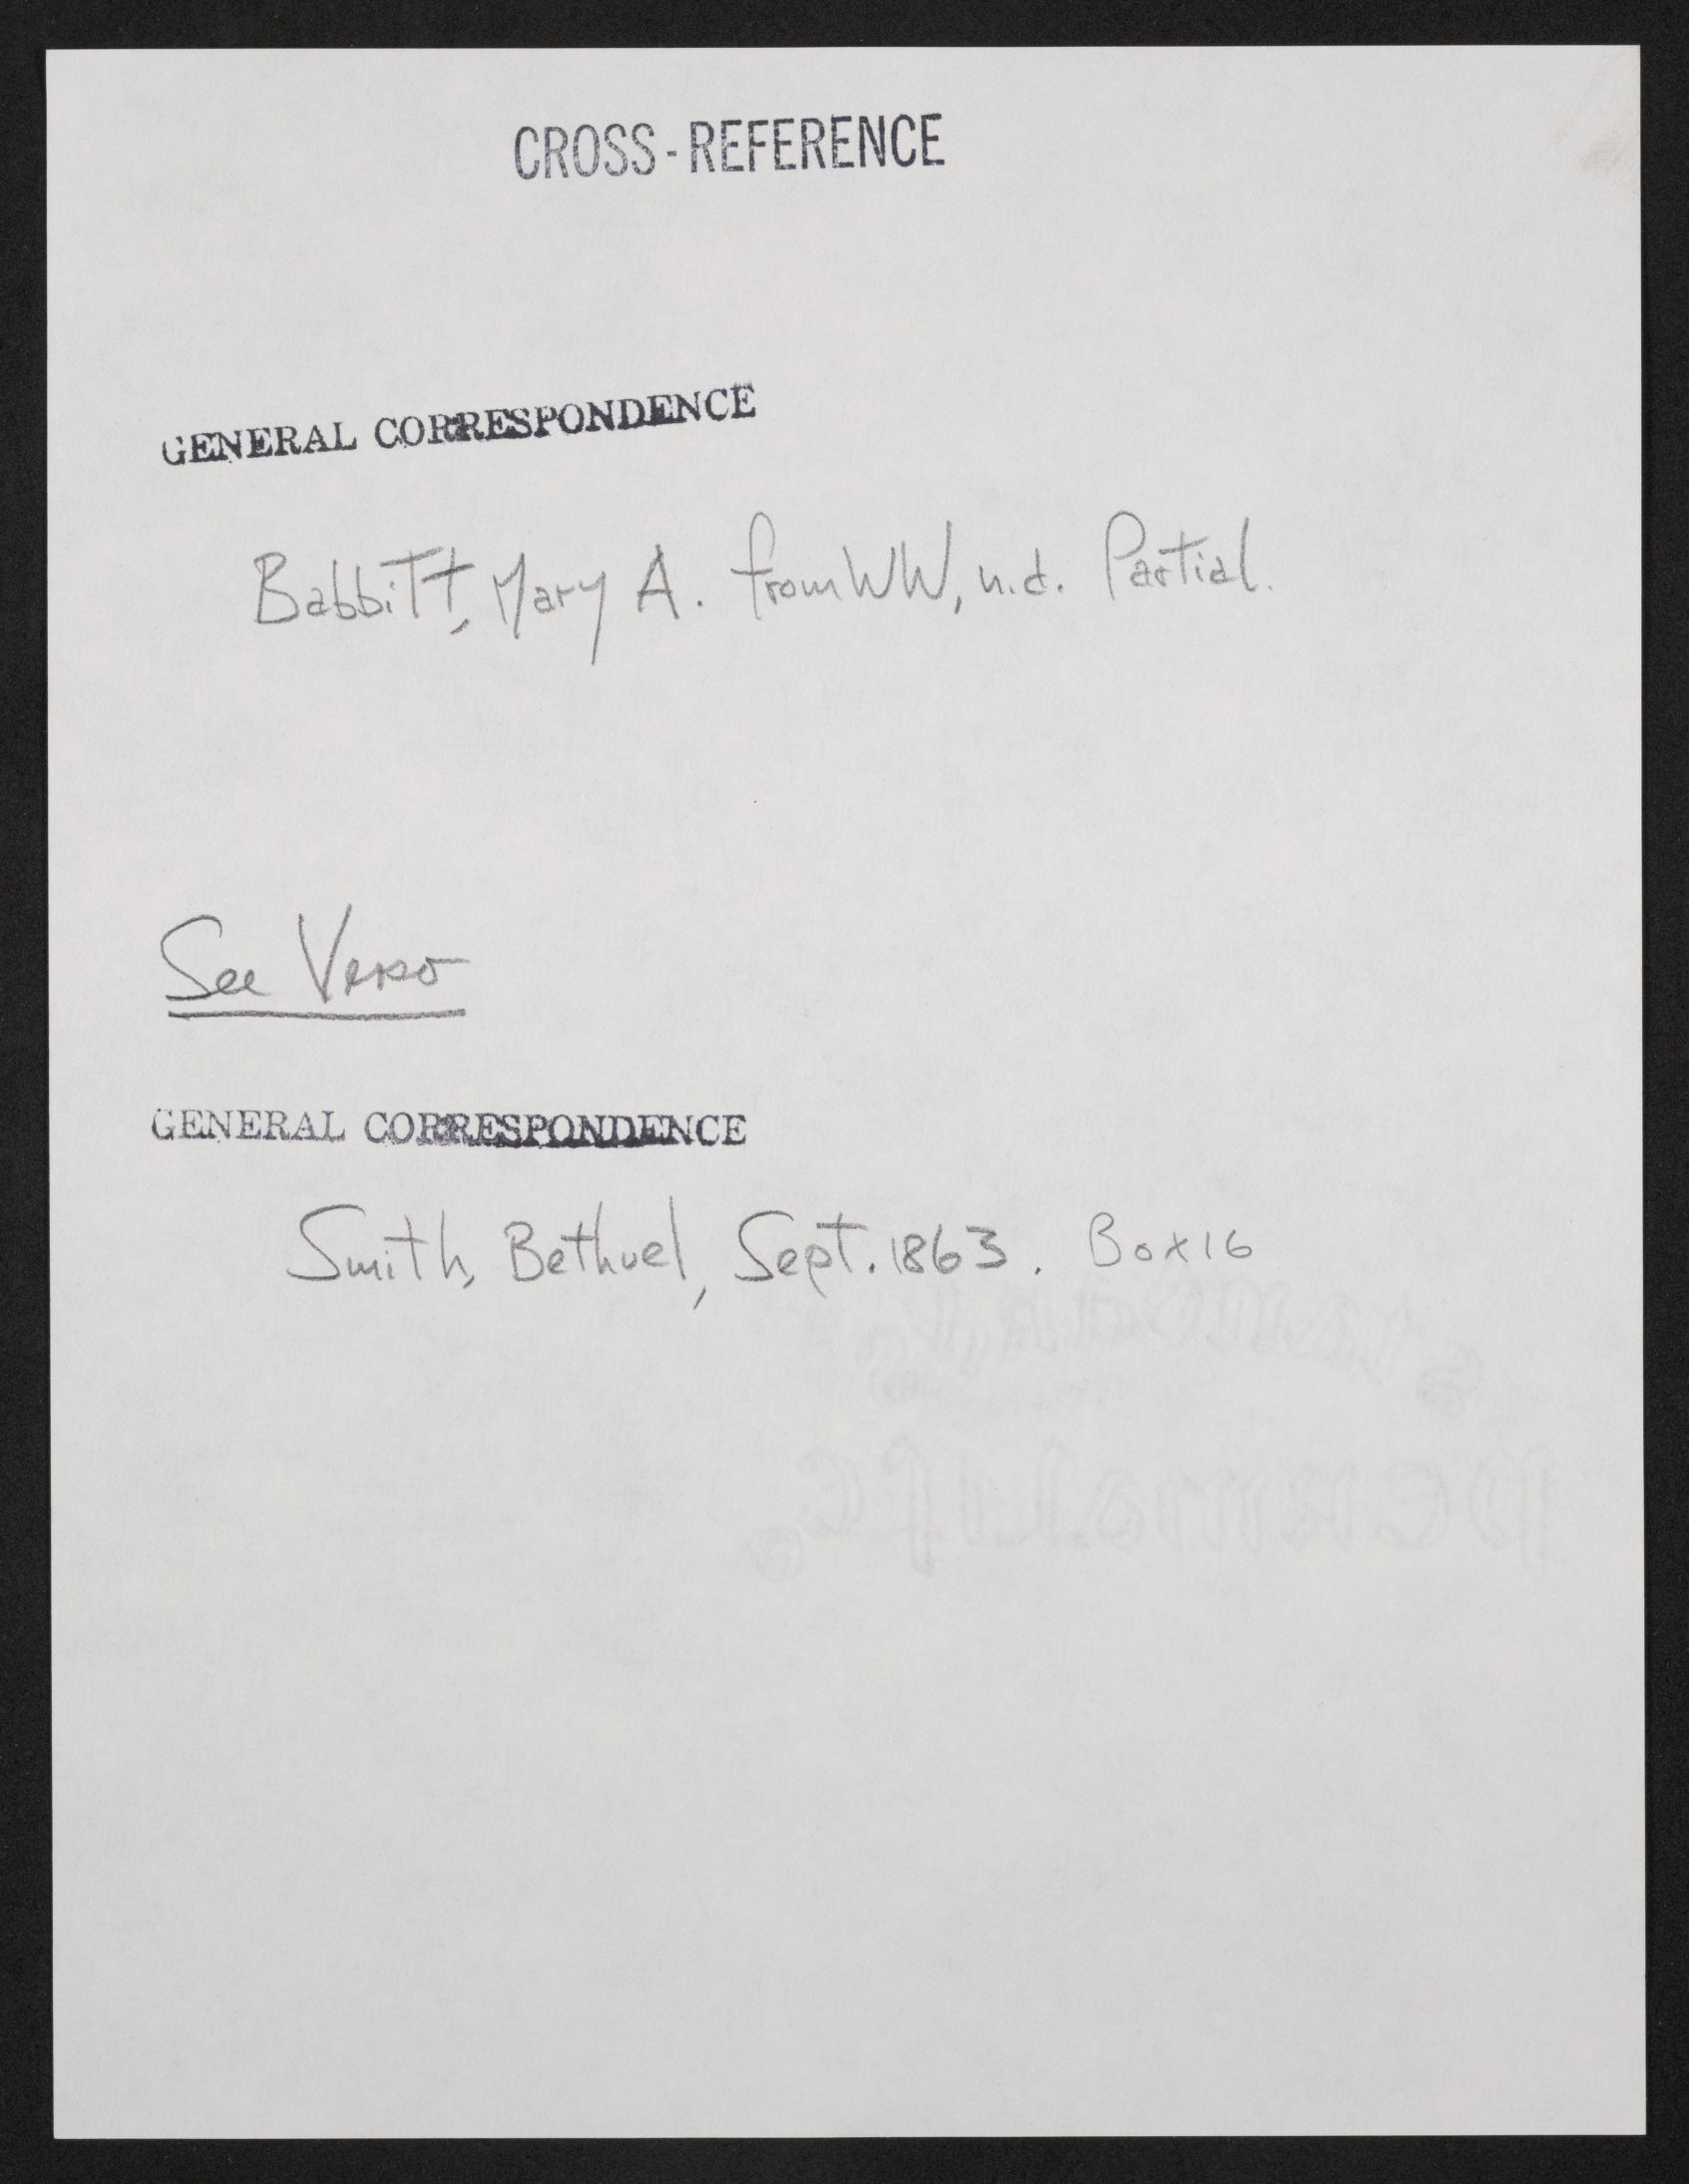 CROSS-REFERENCE
GENERAL CORRESPONDENCE
Babbitt, Mary A. from WW, n.d. Partial.
See Verso
GENERAL CORRESPONDENCE
Smith, Bethuel, Sept. 1863. Box 16